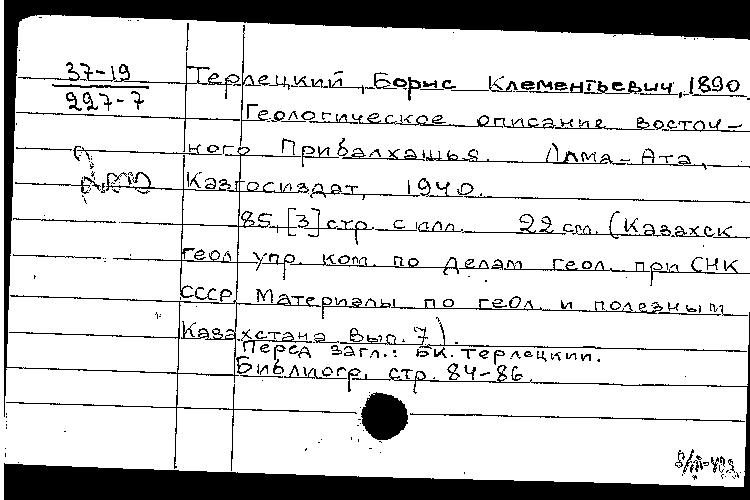 37-19
227-7
Терлецкий, Борис Клементьевич, 1890
Геологическое описание восточ-
ного Прибалхашья. Алма-Ата,
Казгосиздат, 1940.
85, [3] стр. с илл. 22 см. (Казахск.
геол. упр. ком. по делам геол. при СНК
СССР. Материалы по геол. и полезным
Казахстана Вып. 7).
Перед загл.: Б.К. Терлецкий.
Библиогр. стр. 84-86.